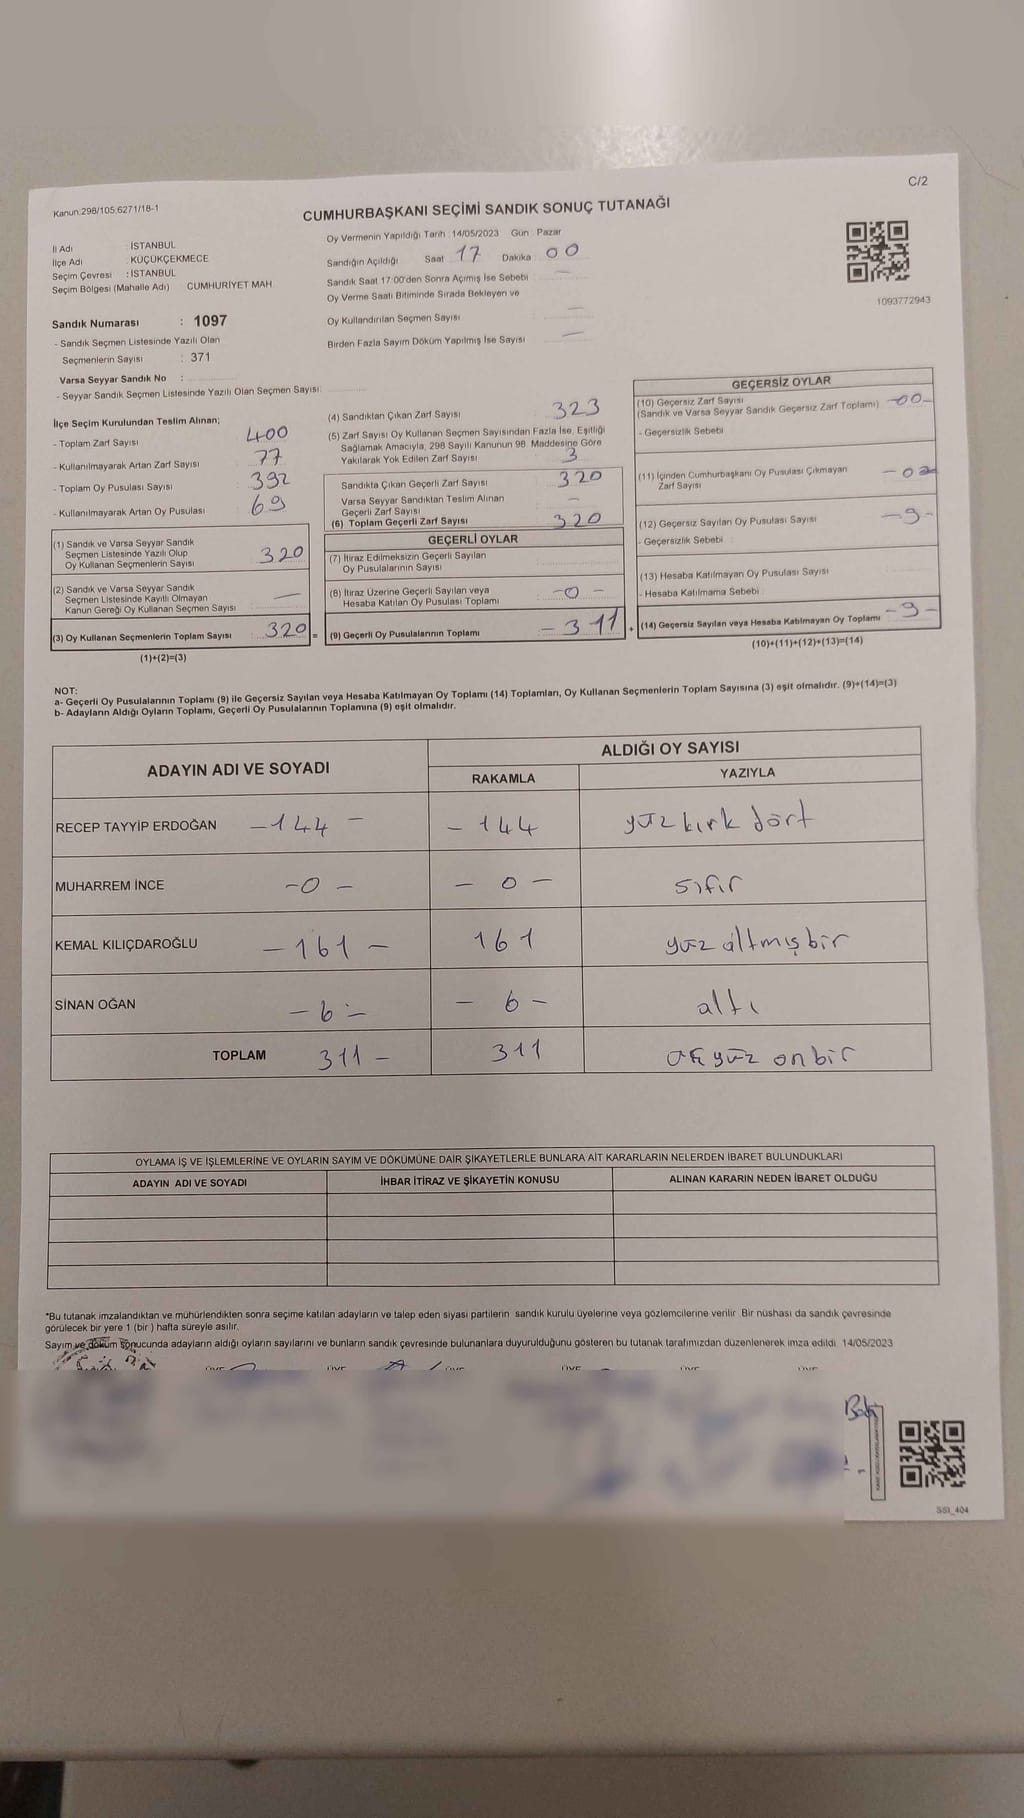 C/2
Kanun:298/105,6271/18-1
CUMHURBAŞKANI SEÇİMİ SANDIK SONUÇ TUTANAĞI
İl Adı : İSTANBUL
İlçe Adı : KÜÇÜKÇEKMECE
Seçim Çevresi : İSTANBUL
Seçim Bölgesi (Mahalle Adı) CUMHURİYET MAH
Sandık Numarası : 1097
- Sandık Seçmen Listesinde Yazılı Olan
Seçmenlerin Sayısı : 371
Varsa Seyyar Sandık No :
- Seyyar Sandık Seçmen Listesinde Yazılı Olan Seçmen Sayısı:
Oy Vermenin Yapıldığı Tarih : 14/05/2023 Gün : Pazar
Sandığın Açıldığı Saat 17 Dakika : 00
Sandık Saat 17:00'den Sonra Açımış İse Sebebi —
Oy Verme Saati Bitiminde Sırada Bekleyen ve
Oy Kullandırılan Seçmen Sayısı —
Birden Fazla Sayım Döküm Yapılmış İse Sayısı —
1093772943
İlçe Seçim Kurulundan Teslim Alınan;
- Toplam Zarf Sayısı 400
- Kullanılmayarak Artan Zarf Sayısı 77
- Toplam Oy Pusulası Sayısı 392
- Kullanılmayarak Artan Oy Pusulası 69
(1) Sandık ve Varsa Seyyar Sandık
Seçmen Listesinde Yazılı Olup
Oy Kullanan Seçmenlerin Sayısı 320
(2) Sandık ve Varsa Seyyar Sandık
Seçmen Listesinde Kayıtlı Olmayan
Kanun Gereği Oy Kullanan Seçmen Sayısı —
(3) Oy Kullanan Seçmenlerin Toplam Sayısı 320 =
(1)+(2)=(3)
(4) Sandıktan Çıkan Zarf Sayısı 323
(5) Zarf Sayısı Oy Kullanan Seçmen Sayısından Fazla İse, Eşitliği
Sağlamak Amacıyla, 298 Sayılı Kanunun 98. Maddesine Göre
Yakılarak Yok Edilen Zarf Sayısı 3
Sandıkta Çıkan Geçerli Zarf Sayısı 320
Varsa Seyyar Sandıktan Teslim Alınan
Geçerli Zarf Sayısı —
(6) Toplam Geçerli Zarf Sayısı 320
GEÇERLİ OYLAR
(7) İtiraz Edilmeksizin Geçerli Sayılan
Oy Pusulalarının Sayısı
(8) İtiraz Üzerine Geçerli Sayılan veya
Hesaba Katılan Oy Pusulası Toplamı -0-
(9) Geçerli Oy Pusulalarının Toplamı -311 +
GEÇERSİZ OYLAR
(10) Geçersiz Zarf Sayısı
(Sandık ve Varsa Seyyar Sandık Geçersiz Zarf Toplamı) -00-
- Geçersizlik Sebebi
(11) İçinden Cumhurbaşkanı Oy Pusulası Çıkmayan
Zarf Sayısı
(12) Geçersiz Sayılan Oy Pusulası Sayısı -9-
- Geçersizlik Sebebi :
(13) Hesaba Katılmayan Oy Pusulası Sayısı
- Hesaba Katılmama Sebebi
(14) Geçersiz Sayılan veya Hesaba Katılmayan Oy Toplamı -9-
(10)+(11)+(12)+(13)=(14)
NOT:
a- Geçerli Oy Pusulalarının Toplamı (9) ile Geçersiz Sayılan veya Hesaba Katılmayan Oy Toplamı (14) Toplamları, Oy Kullanan Seçmenlerin Toplam Sayısına (3) eşit olmalıdır. (9)+(14)=(3)
b- Adayların Aldığı Oyların Toplamı, Geçerli Oy Pusulalarının Toplamına (9) eşit olmalıdır.
ADAYIN ADI VE SOYADI ALDIĞI OY SAYISI
RAKAMLA YAZIYLA
RECEP TAYYİP ERDOĞAN -144- -144 yüz kırk dört
MUHARREM İNCE -0- -0- sıfır
KEMAL KILIÇDAROĞLU -161- 161 yüz altmış bir
SİNAN OĞAN -6- -6- altı
TOPLAM 311- 311 üç yüz on bir
OYLAMA İŞ VE İŞLEMLERİNE VE OYLARIN SAYIM VE DÖKÜMÜNE DAİR ŞİKAYETLERLE BUNLARA AİT KARARLARIN NELERDEN İBARET BULUNDUKLARI
ADAYIN ADI VE SOYADI İHBAR İTİRAZ VE ŞİKAYETİN KONUSU ALINAN KARARIN NEDEN İBARET OLDUĞU
*Bu tutanak imzalandıktan ve mühürlendikten sonra seçime katılan adayların ve talep eden siyasi partilerin sandık kurulu üyelerine veya gözlemcilerine verilir. Bir nüshası da sandık çevresinde
görülecek bir yere 1 (bir) hafta süreyle asılır.
Sayım ve döküm sonucunda adayların aldığı oyların sayılarını ve bunların sandık çevresinde bulunanlara duyurulduğunu gösteren bu tutanak tarafımızdan düzenlenerek imza edildi. 14/05/2023
SSI_404